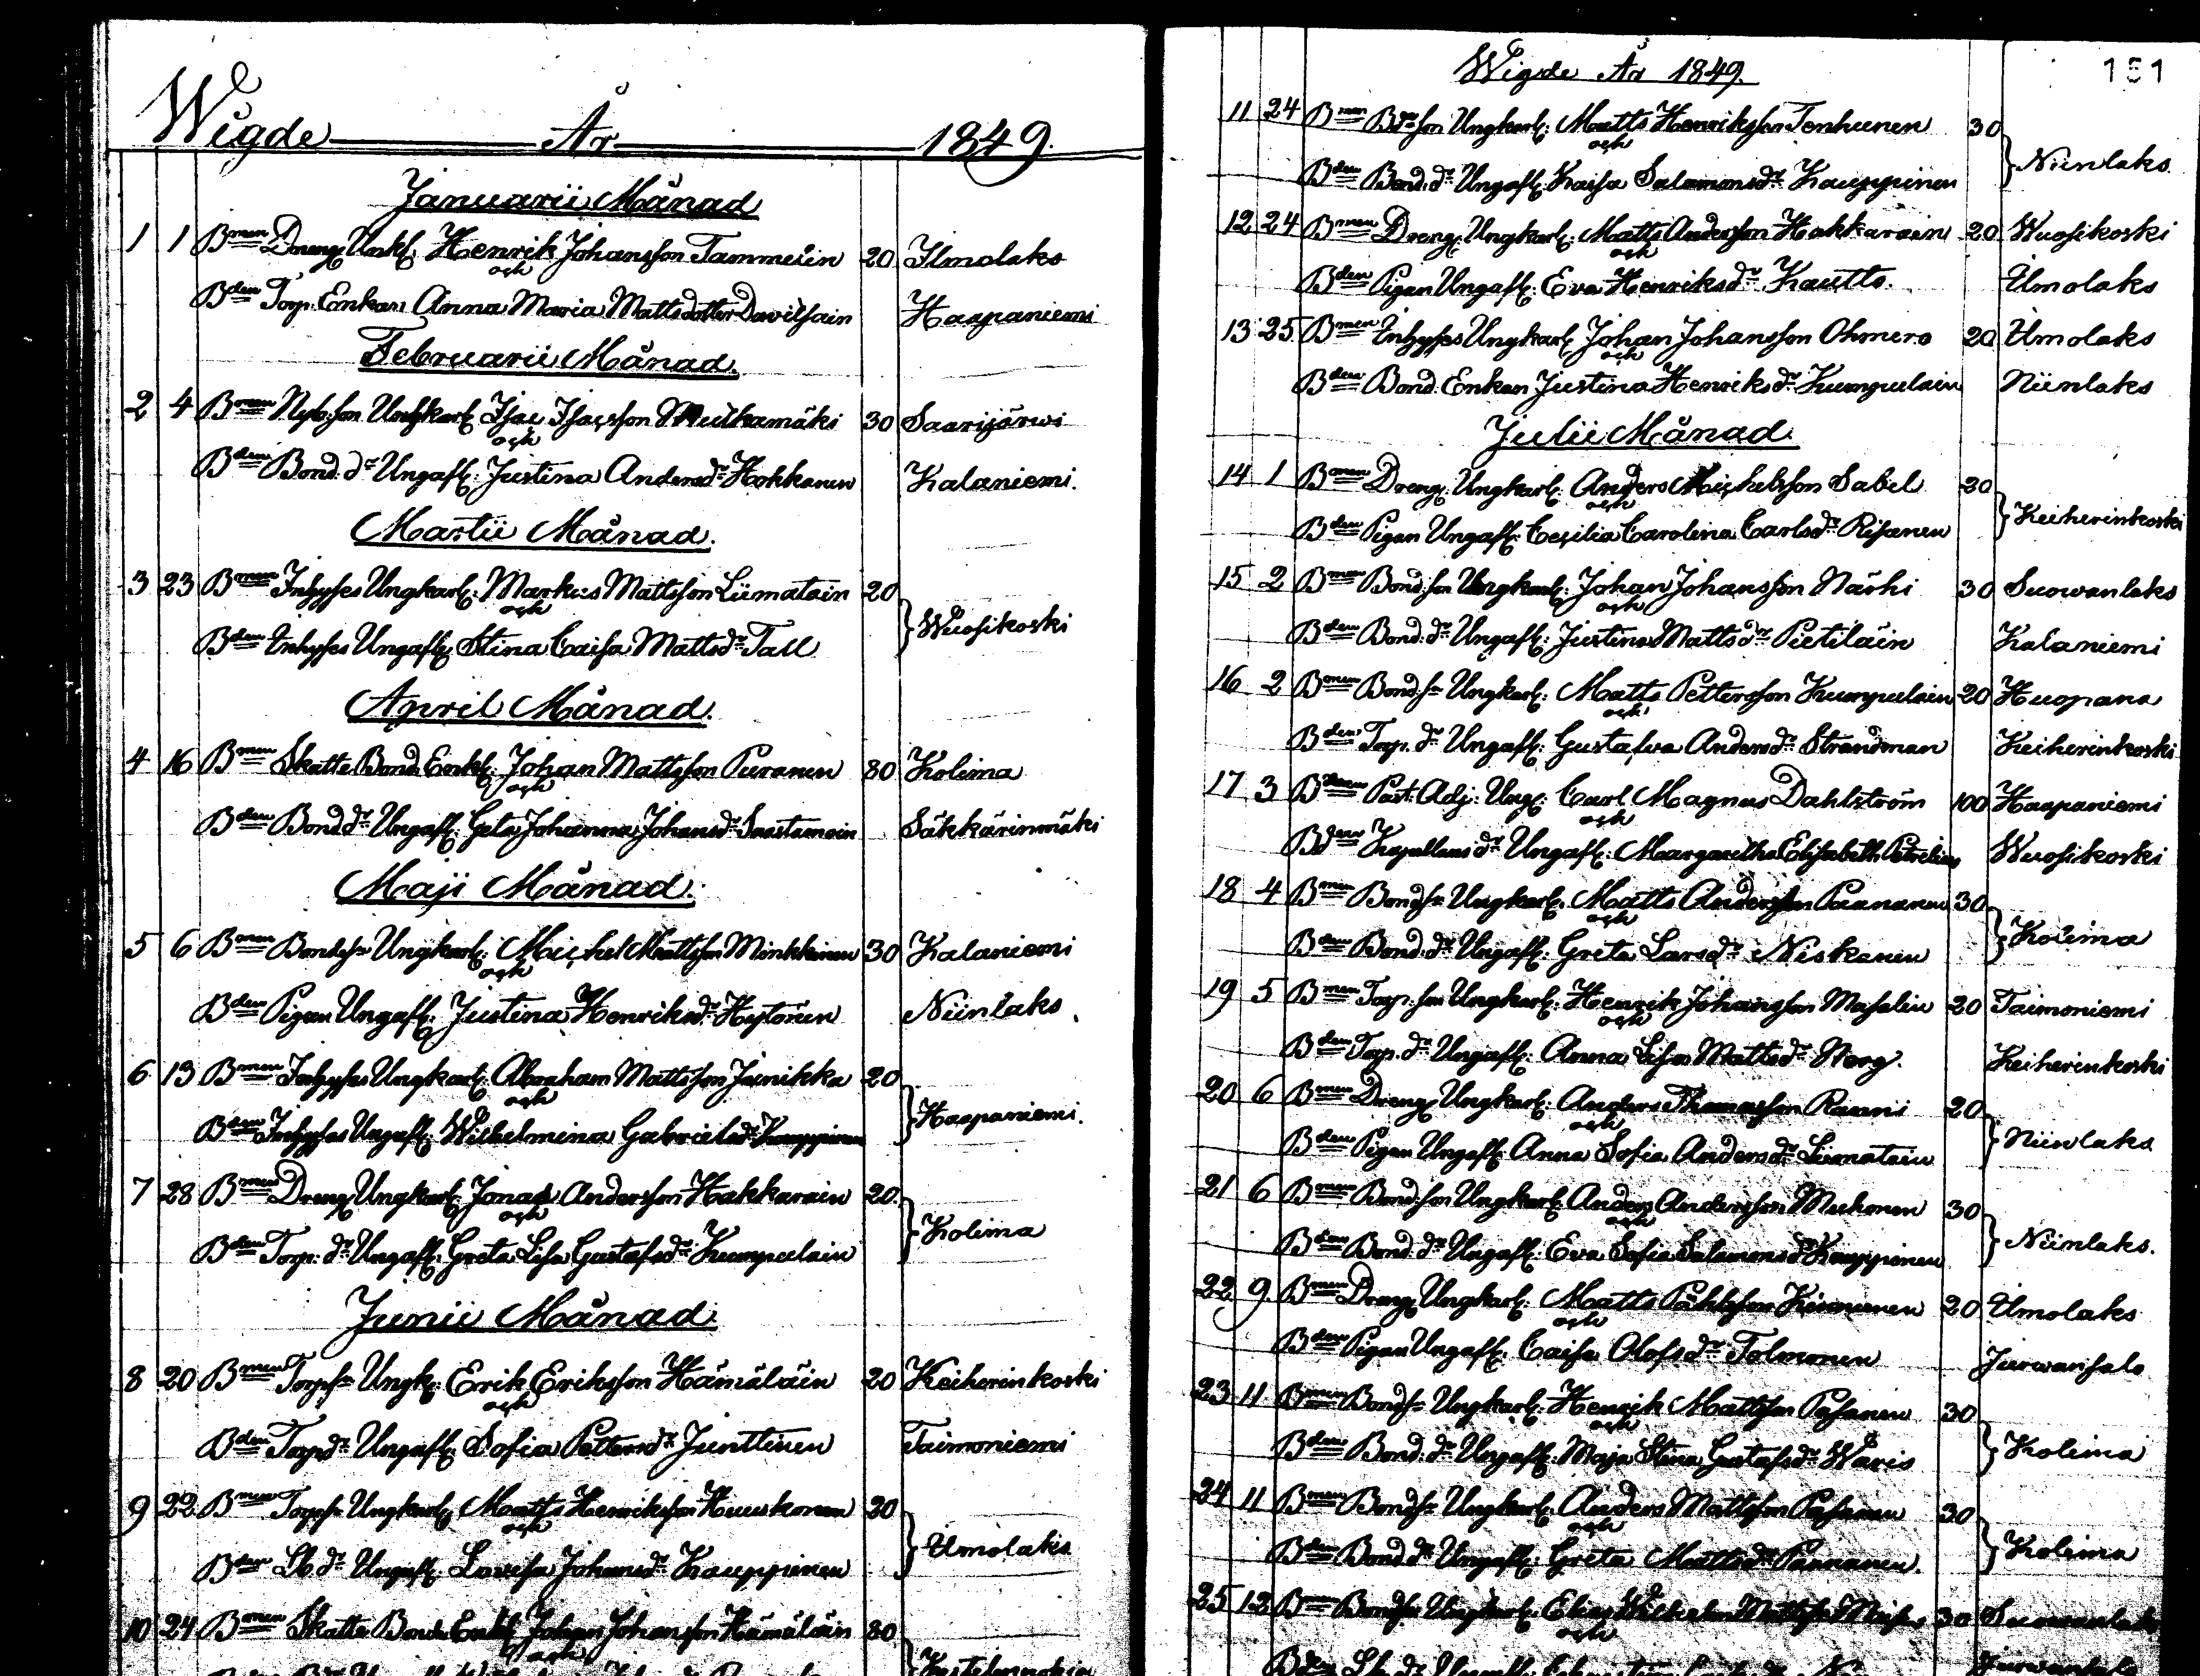 Wigde År 1849.
Januarii Månad
1 1 Bmen Dreng Unkl. Henrik Johansson Tammelin 20 Ilmolaks
och
Bden Torp. Enkan Anna Maria Mattsdotter Davilsain Haapaniemi
Februarii Månad.
2 4 Bmen Nyb. son Ungkarl. Isac Isacsson Muikamäki 30 Saarijärwi
och
Bden Bond. dr Ungafl. Justina Andersdr Hokkanen Kalaniemi.
Martii Månad.
3 23 Bmen Inhyses Ungkarl. Markus Mattsson Liimatain 20
och
} Wuosikoski
Bden Inhyses Ungafl. Stina Caisa Mattsdr Tall
April Månad.
4 16 Bmen Skatte Bond. Enkl. Johan Mattsson Puranen 80 Kolima
och
Bden Bond dr Ungafl. Greta Johanna Johansdr Saastamoin Säkkärinmäki
Maji Månad.
5 6 Bmen Bondesn Ungkarl. Michel Mattsson Minkkinen 30 Kalaniemi
och
Bden Pigan Ungafl. Justina Henriksdr Hytönen Niinlaks.
6 13 Bmen Inhyses Ungkarl. Abraham Mattsson Junikka 20
och
} Haapaniemi.
Bden Inhyses Ungafl. Wilhelmina Gabrielsdr Kauppinen
7 28 Bmen Dreng Ungkarl. Jonas Andersson Hakkarain 20.
och
} Kolima
Bden Torp. dr Ungafl. Greta Lisa Gustafsdr Kumpulain
Junii Månad.
8 20 Bmen Torpsn Ungk. Erik Eriksson Hämäläin 20 Keiherinkoski
och
Bden Torpdr Ungafl. Sofia Pettersdr Junttinen Taimoniemi
9 22 Bmen Torpsn Ungkarl. Matts Henriksson Huuskonen 20
och
} Ilmolaks
Bden Sk. dr Ungafl. Lovisa Johansdr Kauppinen
10 24 Bmen Skatte Bonde Enkl. Johan Johansson Hämäläin 80
och
Wigde År 1849.
151
11 24 Bmen Bdeson Ungkarl. Matts Henriksson Tenhunen 30
och
} Niinlaks
Bden Bond. dr Ungafl. Kaisa Salamonsdr Kauppinen
12 24 Bmen Dreng. Ungkarl. Matts Andersson Hakkarain 20 Wuosikoski
och
Bden Pigan Ungafl. Eva Henriksdr Kautto. Ilmolaks
13 25 Bmen Inhyses Ungkarl. Johan Johansson Ohmero 20 Ilmolaks
och
Bden Bond. Enkan Justina Henriksdr Kumpulain Niinlaks
Julii Månad.
14 1 Bmen Dreng. Ungkarl. Anders Michelsson Sabel 20
och
} Keiherinkoski
Bden Pigan Ungafl. Cecilia Carolina Carlsdr Risanen
15 2 Bmen Bond. son Ungkarl. Johan Johansson Närhi 30 Suowanlaks
och
Bden Bond. dr Ungafl. Justina Mattsdr Pietiläin Kalaniemi
16 2 Bmen Bond. sn Ungkarl. Matts Pettersson Kumpulain 20 Huopana
och
Bden Torp. dr Ungafl. Gustafva Andersdr Strandman Keiherinkoski
17 3 Bmen Past. Adj. Ung. Carl Magnus Dahlström 100 Haapaniemi
och
Bden Kapellans dr Ungafl. Margaretha Elisabeth Petrelius Wuosikoski
18 4 Bmen Bondsn Ungkarl. Matts Andersson Paananen 30
och
} Kolima
Bden Bond. dr Ungafl. Greta Larsdr Niskanen
19 5 Bmen Torp. son Ungkarl. Henrik Johansson Masalin 20 Taimoniemi
och
Bden Torp. dr Ungafl. Anna Lisa Mattsdr Storg. Keiherinkoski
20 6 Bmen Dreng. Ungkarl. Anders Thomasson Rauni 20
och
} Niinlaks
Bden Pigan Ungafl. Anna Sofia Andersdr Liimatain
21 6 Bmen Bond. son Ungkarl. Anders Andersson Muhonen 30
och
} Niinlaks.
Bden Bond. dr Ungafl. Eva Sofia Salamonsdr Kauppinen
22 9 Bmen Dreng Ungkarl. Matts Påhlsson Kinnunen 20 Ilmolaks
och
Bden Pigan Ungafl. Caisa Olofsdr Tolmonen Jurwansalo
23 11 Bmen Bondsn Ungkarl. Henrik Mattsson Pasanen 30
och
} Kolima
Bden Bond. dr Ungafl. Maja Stina Gustafsdr Waris
24 11 Bmen Bondsn Ungkarl. Anders Mattsson Pasanen 30
och
} Kolima
Bden Bond dr Ungafl. Greta Mattsdr Paananen.
25 12 Bmen Bondsn Ungkarl. Elias Wilhelm Mattsson 30 Suowanlaks
och